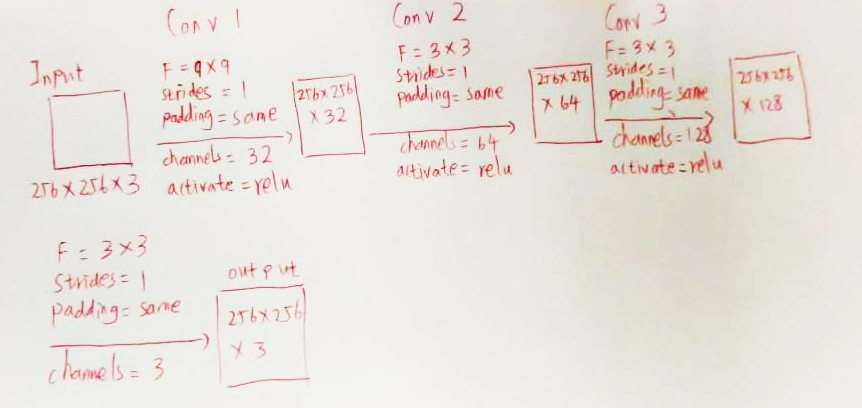 Input
256 x 256 x 3
Conv 1
F = 9 x 9
strides = 1
padding = same
channels = 32
activate = relu
256 x 256
x 32
Conv 2
F = 3 x 3
Strides = 1
Padding = same
channels = 64
activate = relu
256 x 256
x 64
Conv 3
F = 3 x 3
Strides = 1
padding = same
channels = 128
activate = relu
256 x 256
x 128
F = 3 x 3
Strides = 1
Padding = same
channels = 3
output
256 x 256
x 3